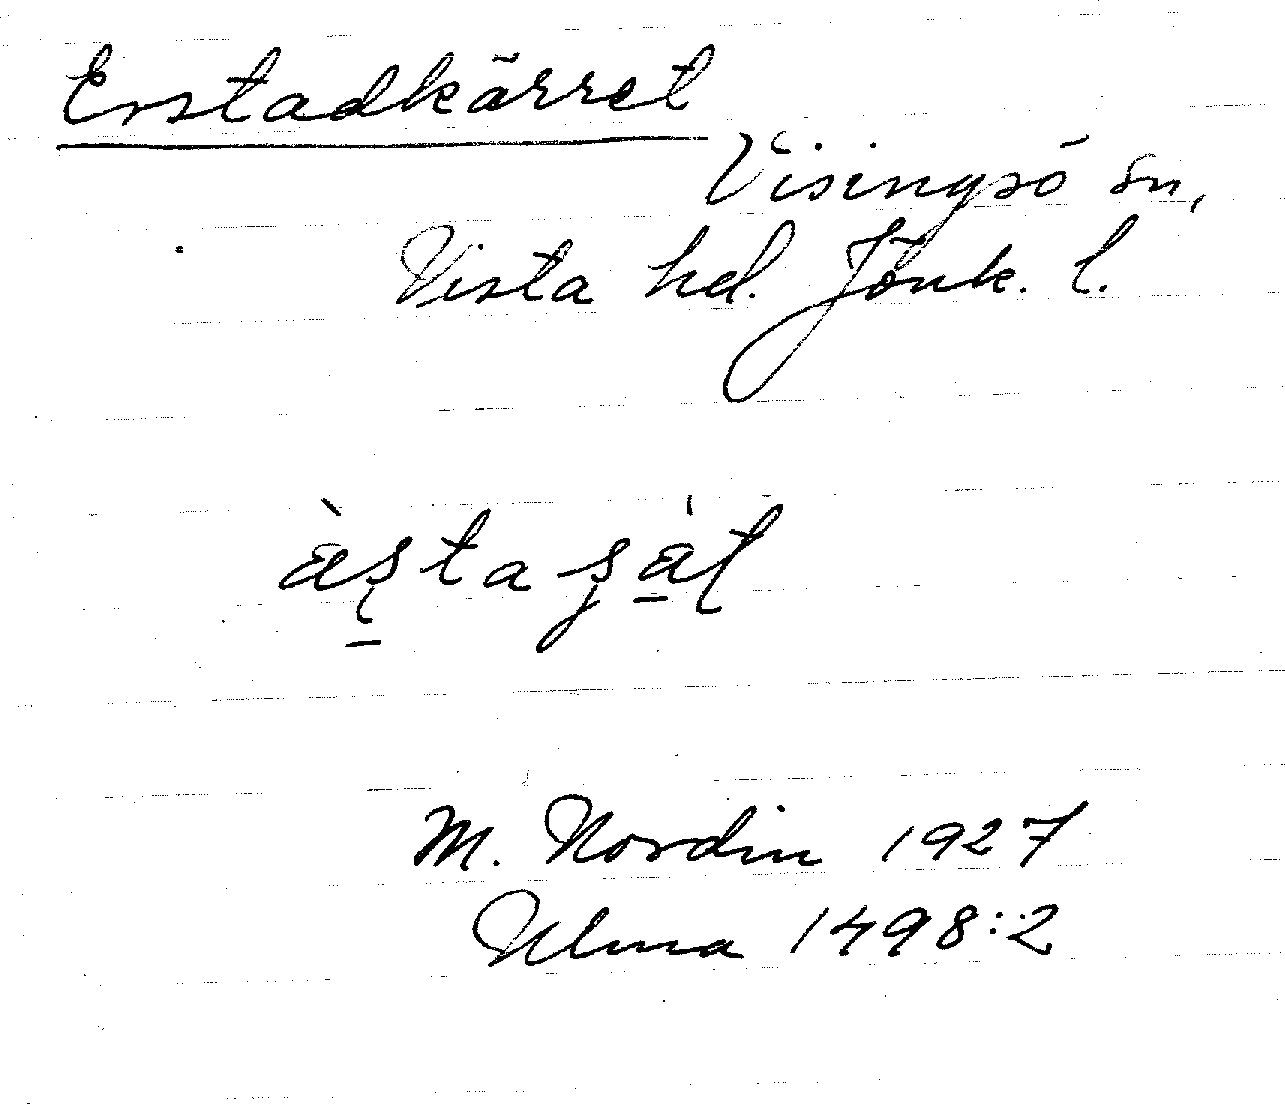 Erstadkärret
Visingsö sn,
Vista hd. Jönk. l.
M. Nordin 1927
Ulma 1498:2